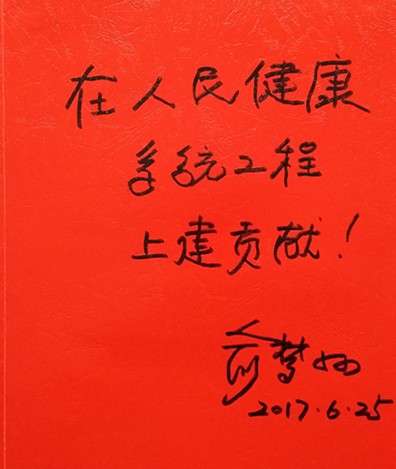 在人民健康
系统工程
上建贡献！
俞梦孙
2017.6.25